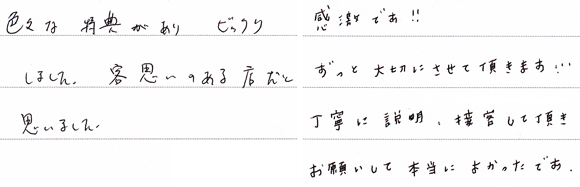 色々な 特典があり ビックリ
しました。 客思いのある店だと
思いました。
感激です!!
ずっと大切にさせて頂きます…
丁寧に説明、接客して頂き
お願いして本当によかったです。